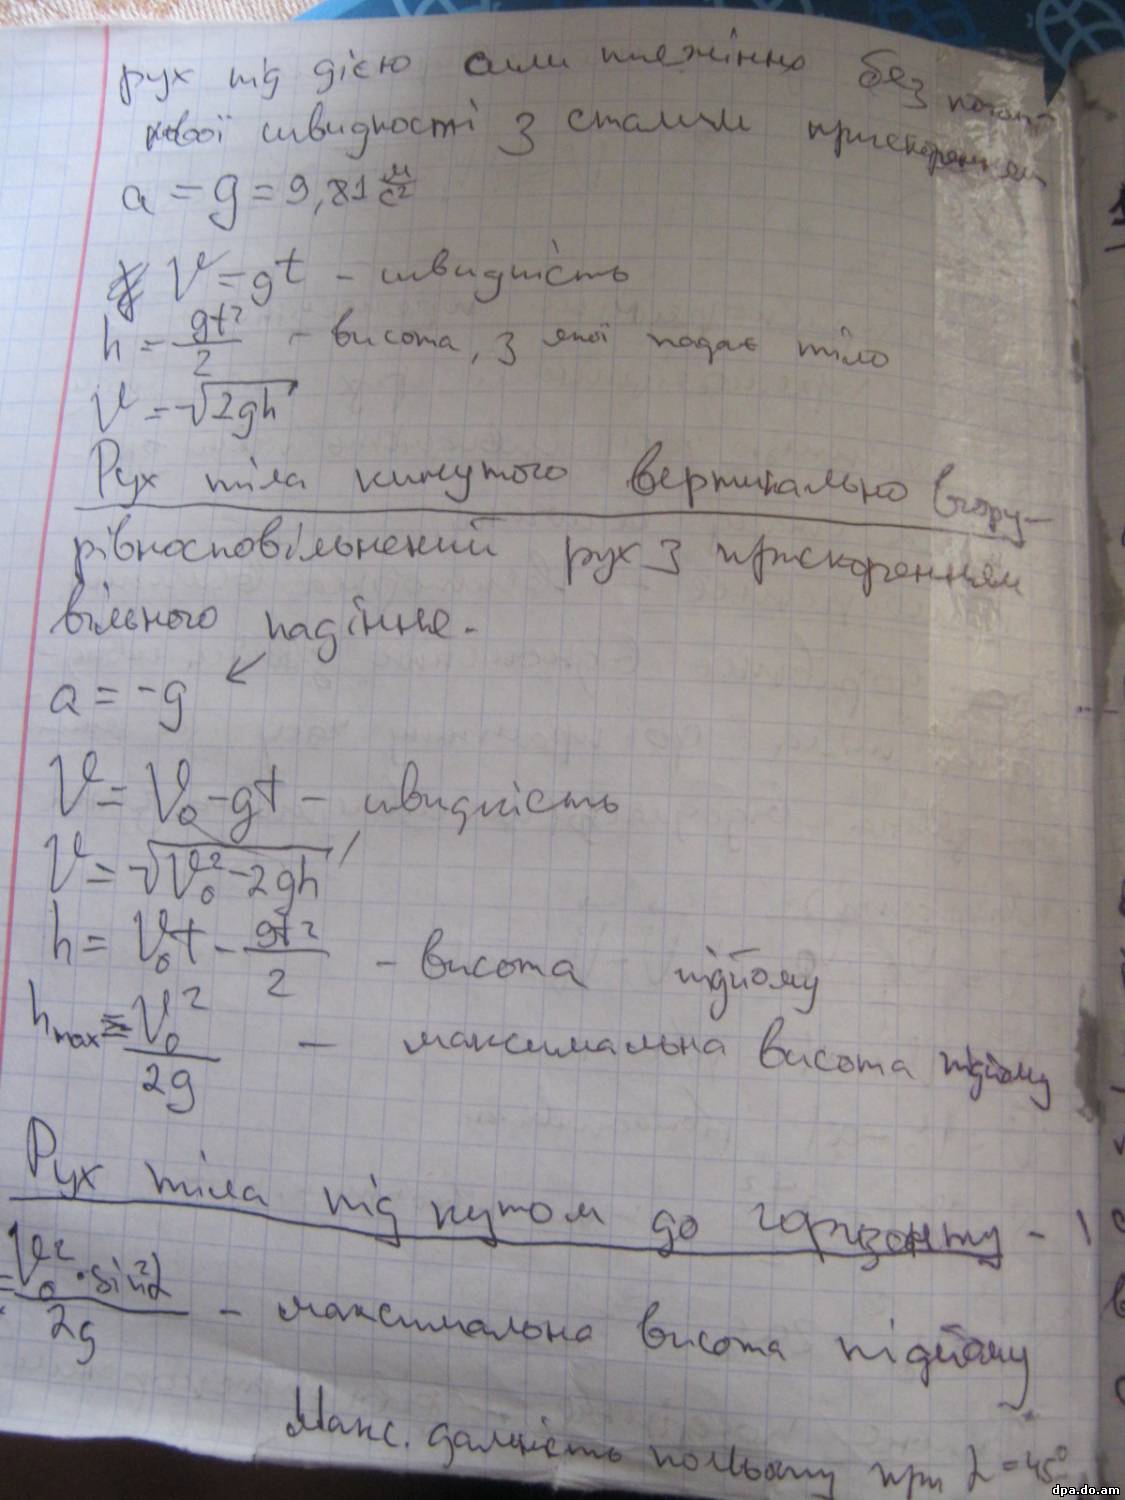 рух під дією сили тяжіння без почат-
кової швидкості з сталим прискоренням
a = g = 9,81 м/с²
V = gt – швидкість
h = gt²/2 – висота, з якої падає тіло
V = √2gh
Рух тіла кинутого вертикально вгору –
рівносповільнений рух з прискоренням
вільного падіння.
a = -g ↙
V = V₀ - gt – швидкість
V = √V₀² - 2gh
h = V₀t - gt²/2 – висота підйому
hmax = V₀²/2g – максимальна висота підйому
Рух тіла під кутом до горизонту –
= V₀² · sin²α/2g – максимальна висота підйому
Макс. дальність польоту при α = 45°
dpa.do.am